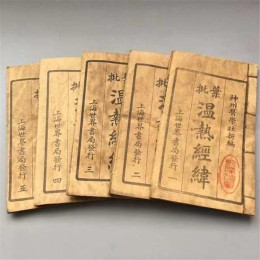 神州醫學社新編
葉批
溫熱經緯
上海世界書局發行 一
批
溫熱經緯
上海世界書局發行 二
批
溫熱經緯
上海世界書局發行 三
批
上海世界書局發行 四
批
上海世界書局發行 五